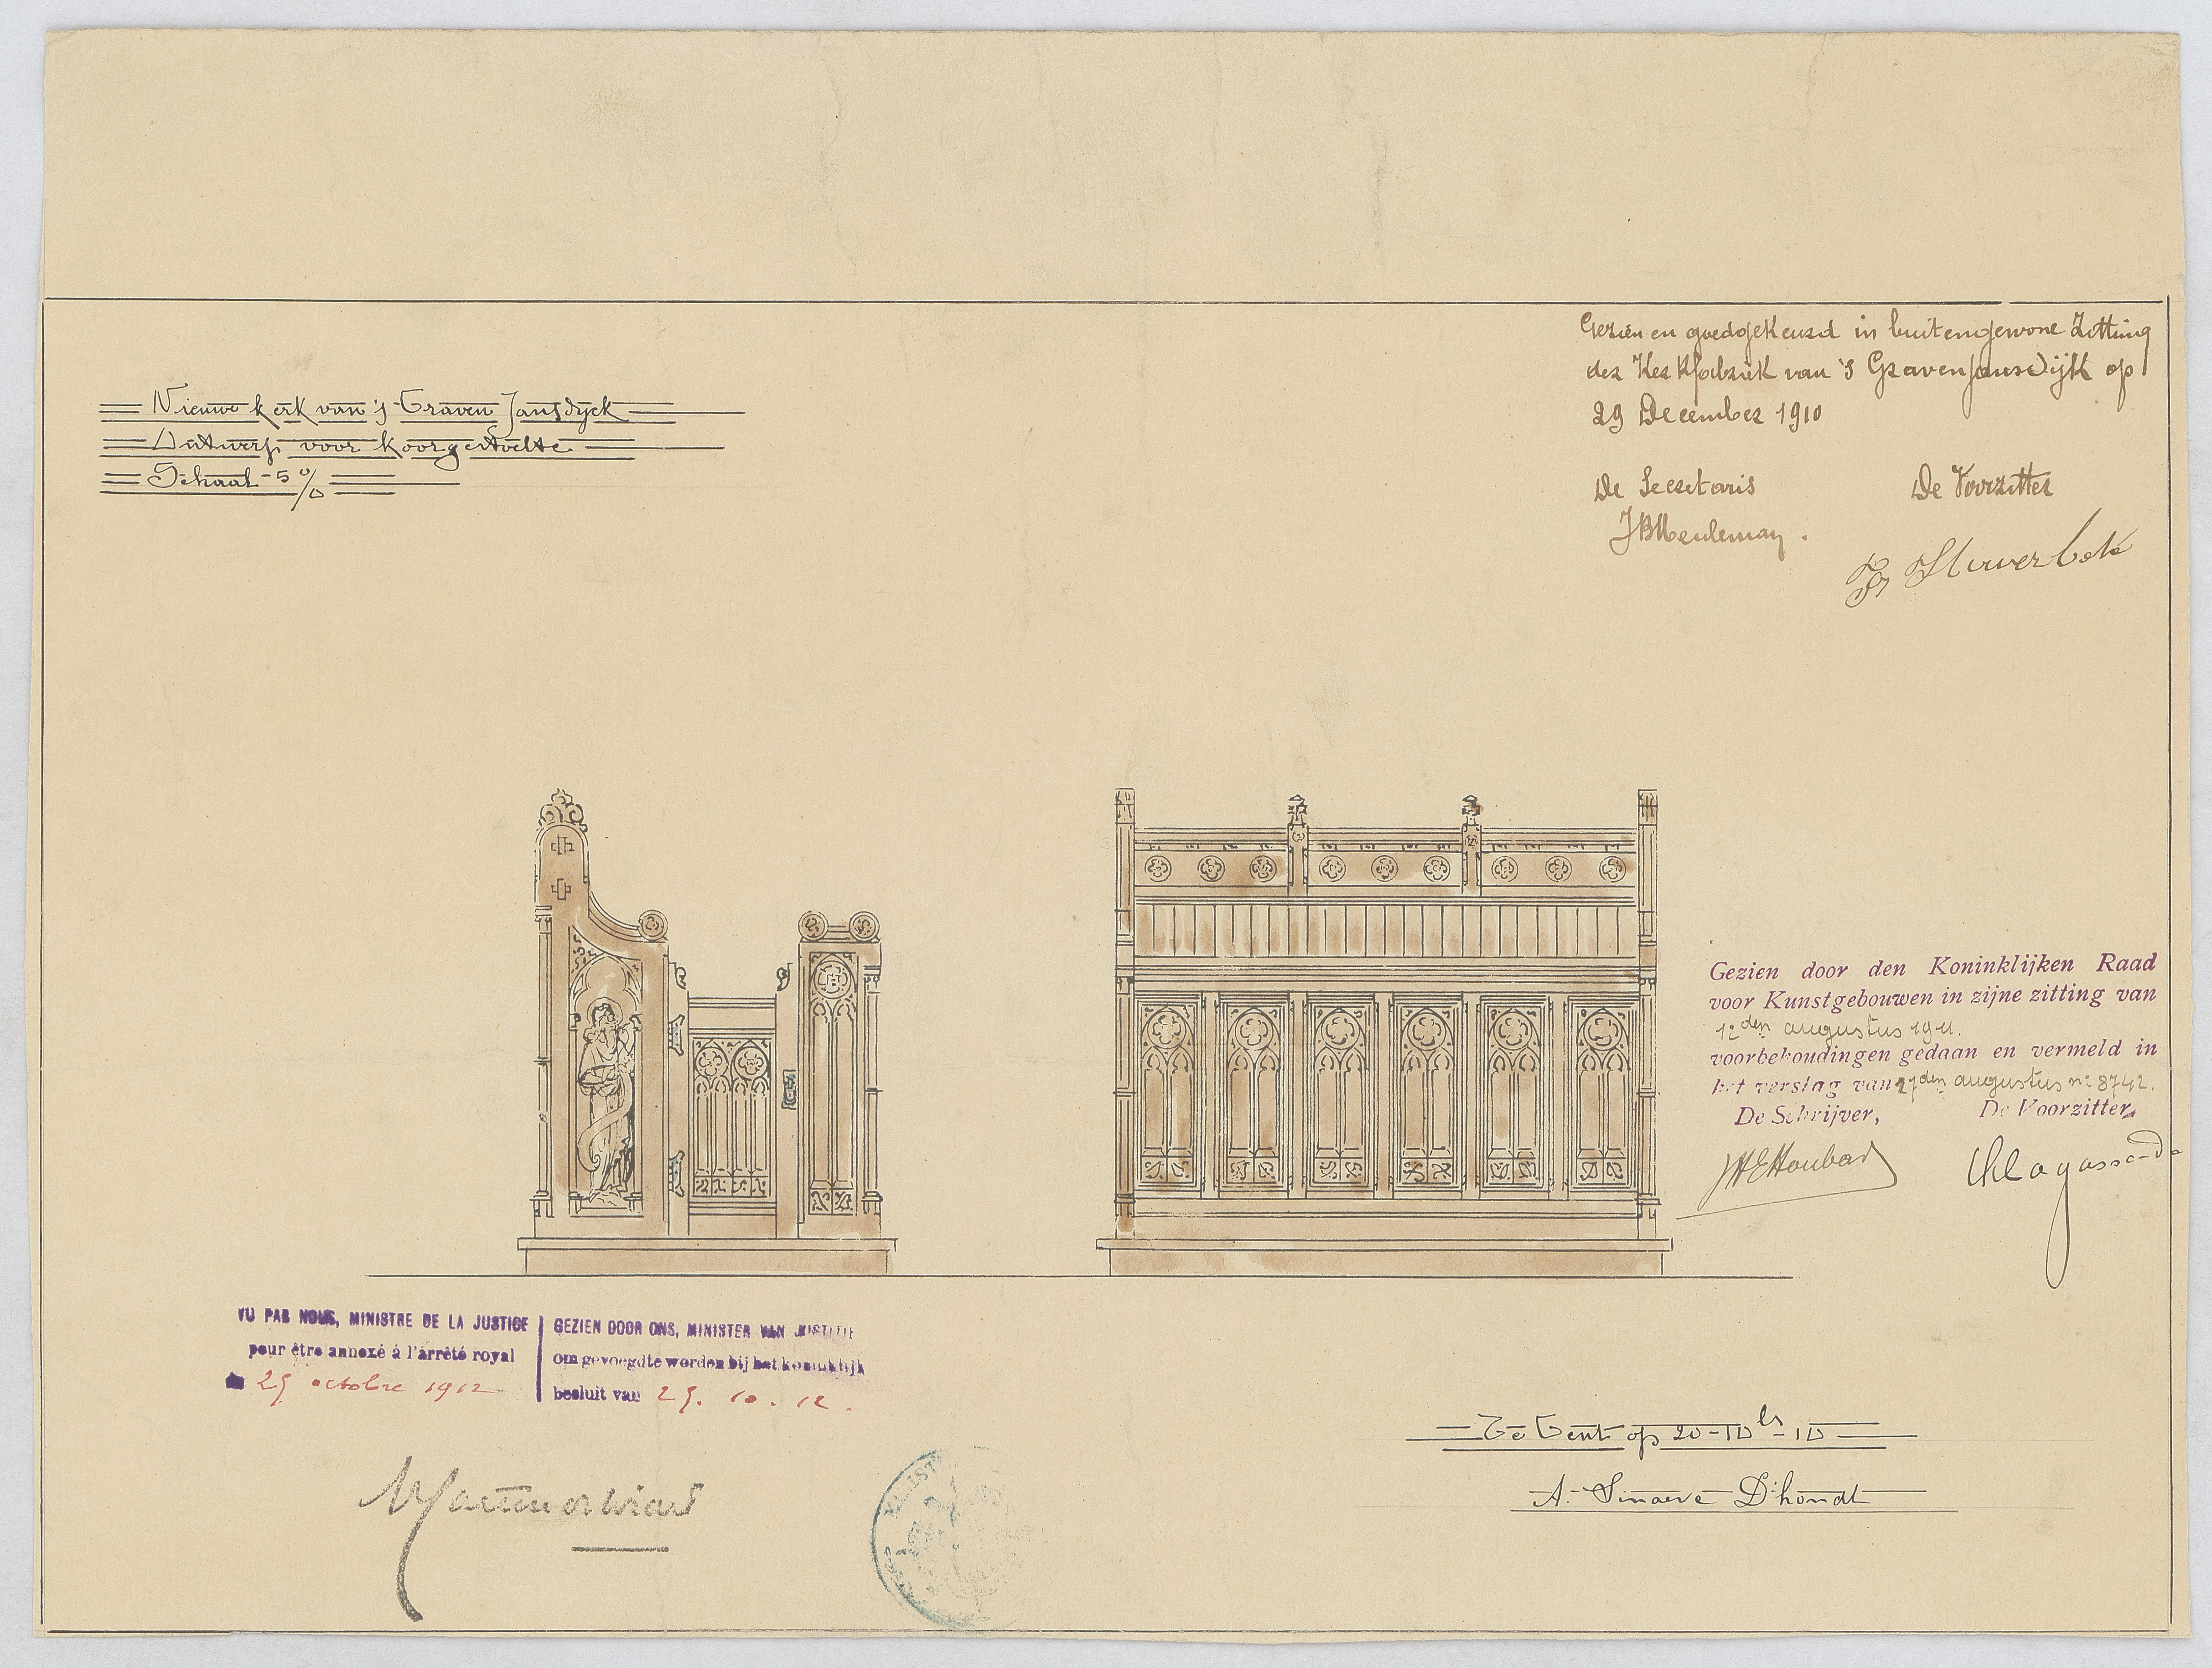 Nieuwe kerk van 's Graven Jansdyck
Ontwerp voor koorgestoelte
Schaal - 5 %
Gezien en goedgekeurd in buitengewone Zitting
der Kerkfabriek van 's GravenjansDijk op
29 December 1910
De Secretaris De Voorzitter
JBMeuleman.
Gezien door den Koninklijken Raad
voor Kunstgebouwen in zijne zitting van
12den augustus 1911.
voorbehoudingen gedaan en vermeld in
het verslag van 27den augustus no 8742.
De Schrijver, De Voorzitter,
VU PAR NOUS, MINISTRE DE LA JUSTICE
pour être annexé à l'arrêté royal
25 octobre 1912
GEZIEN DOOR ONS, MINISTER VAN JUSTITIE
om gevoegd te worden bij het koninklijk
besluit van 25. 10. 12.
Te Gent op 20-10bs-10
A. Sinaeve D'hondt